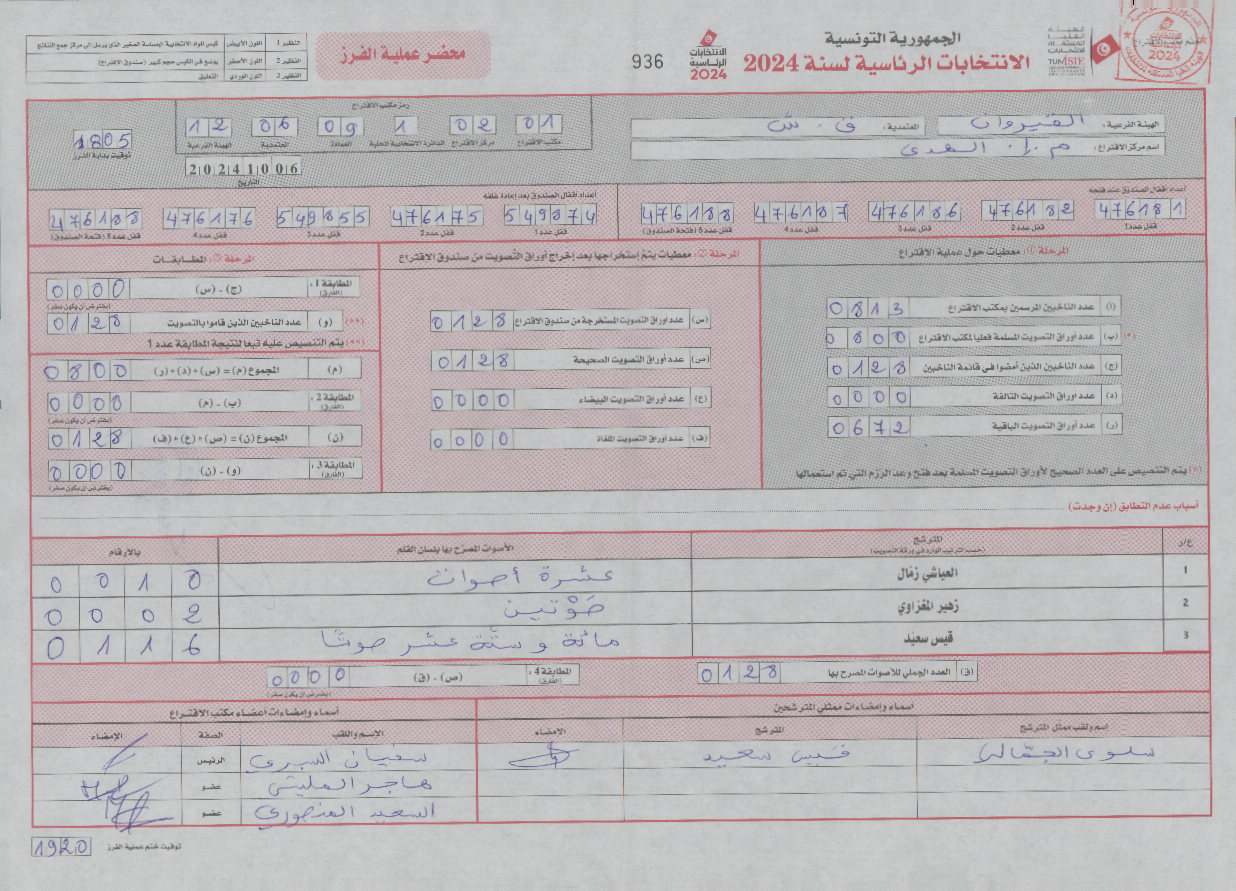 الجمهورية التونسية
الانتخابات الرئاسية لسنة 2024
الهيئة العليا المستقلة للانتخابات
TUNISIE
الانتخابات الرئاسية 2024
936
محضر عملية الفرز
النظير 1 اللون الأبيض كيس المواد الانتخابية الحساسة الصغير الذي يرسل الى مركز جمع النتائج
النظير 2 اللون الأصفر يوضع في الكيس حجم كبير (صندوق الاقتراع)
النظير 3 اللون الوردي التعليق
الهيئة الفرعية: القيروان المعتمدية: ق. ش
اسم مركز الاقتراع: م. إ. الهدى
رمز مكتب الاقتراع
01 02 1 09 06 12
مكتب الاقتراع مركز الاقتراع الدائرة الانتخابية المحلية العمادة المعتمدية الهيئة الفرعية
20241006
التاريخ
1805
توقيت بداية الفرز
أعداد أقفال الصندوق عند فتحه
476181 476182 476186 476187 476188
قفل عدد 1 قفل عدد 2 قفل عدد 3 قفل عدد 4 قفل عدد 5 (فتحة الصندوق)
أعداد أقفال الصندوق بعد إعادة غلقه
549874 476175 549855 476176 476188
قفل عدد 1 قفل عدد 2 قفل عدد 3 قفل عدد 4 قفل عدد 5 (فتحة الصندوق)
المرحلة 1: معطيات حول عملية الاقتراع
(أ) عدد الناخبين المرسمين بمكتب الاقتراع 0813
(*) (ب) عدد أوراق التصويت المسلمة فعليا لمكتب الاقتراع 0800
(ج) عدد الناخبين الذين أمضوا في قائمة الناخبين 0128
(د) عدد أوراق التصويت التالفة 0000
(ر) عدد أوراق التصويت الباقية 0672
(*) يتم التنصيص على العدد الصحيح لأوراق التصويت المسلمة بعد فتح وعد الرزم التي تم استعمالها
المرحلة 2: معطيات يتم إستخراجها بعد إخراج أوراق التصويت من صندوق الاقتراع
(س) عدد أوراق التصويت المستخرجة من صندوق الاقتراع 0128
(ص) عدد أوراق التصويت الصحيحة 0128
(ع) عدد أوراق التصويت البيضاء 0000
(ف) عدد أوراق التصويت الملغاة 0000
المرحلة 3: المطابقات
المطابقة 1: (الفارق) (ج) - (س) 0000
(يفترض أن يكون صفر)
(**) (و) عدد الناخبين الذين قاموا بالتصويت 0128
(**) يتم التنصيص عليه تبعا لنتيجة المطابقة عدد 1
(م) المجموع (م) = (س) + (د) + (ر) 0800
المطابقة 2: (الفارق) (ب) - (م) 0000
(يفترض أن يكون صفر)
(ن) المجموع (ن) = (ص) + (ع) + (ف) 0128
المطابقة 3: (الفارق) (و) - (ن) 0000
(يفترض أن يكون صفر)
أسباب عدم التطابق (إن وجدت)
ع/ر المترشح الأصوات المصرّح بها بلسان القلم بالأرقام
(حسب الترتيب الوارد في ورقة التصويت)
1 العياشي زمّال عشرة أصوات 0010
2 زهير المغزاوي صَوْتين 0002
3 قيس سعيّد مائة وستّة عشر صوتًا 0116
(ق) العدد الجملي للأصوات المصرح بها 0128
المطابقة 4: (الفارق) (ص) - (ق) 0000
(يفترض أن يكون صفر)
أسماء وإمضاءات ممثلي المترشحين
إسم ولقب ممثل المترشح المترشح الإمضاء
سلوى الجمّالي قيس سعيد
أسماء وإمضاءات أعضاء مكتب الاقتراع
الاسم واللقب الصفة الإمضاء
سفيان الرئيس
هاجر عضو
السعيد المنصوري عضو
توقيت ختم عملية الفرز 1920